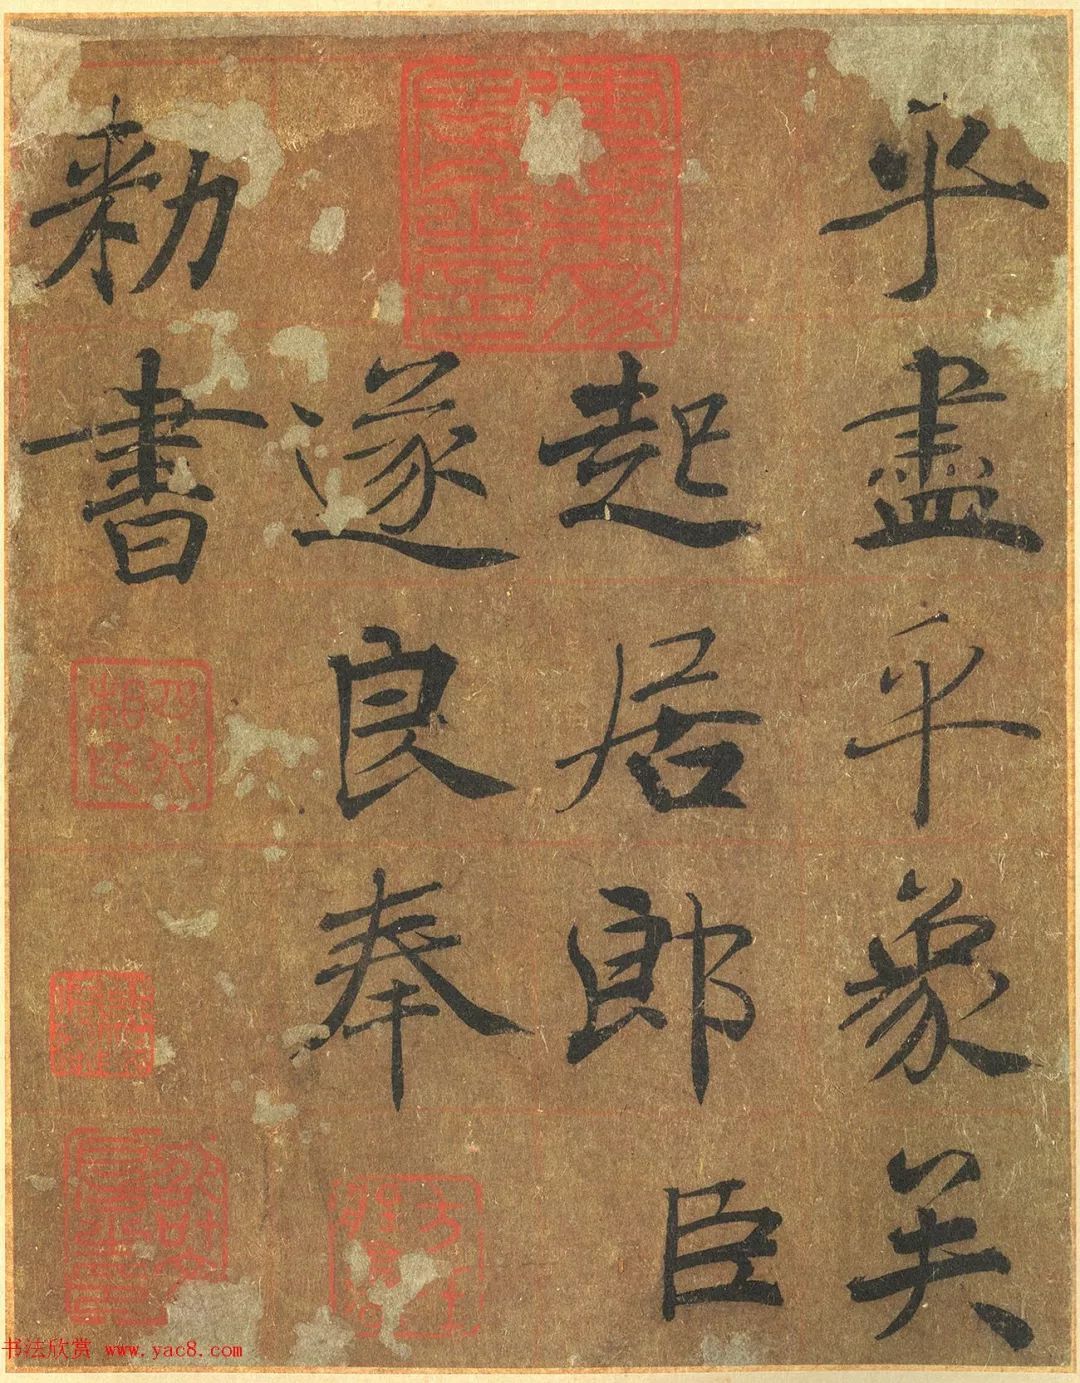 乎盡乎象矣
起居郎臣
遂良奉
勑書
书法欣赏 www.yac8.com